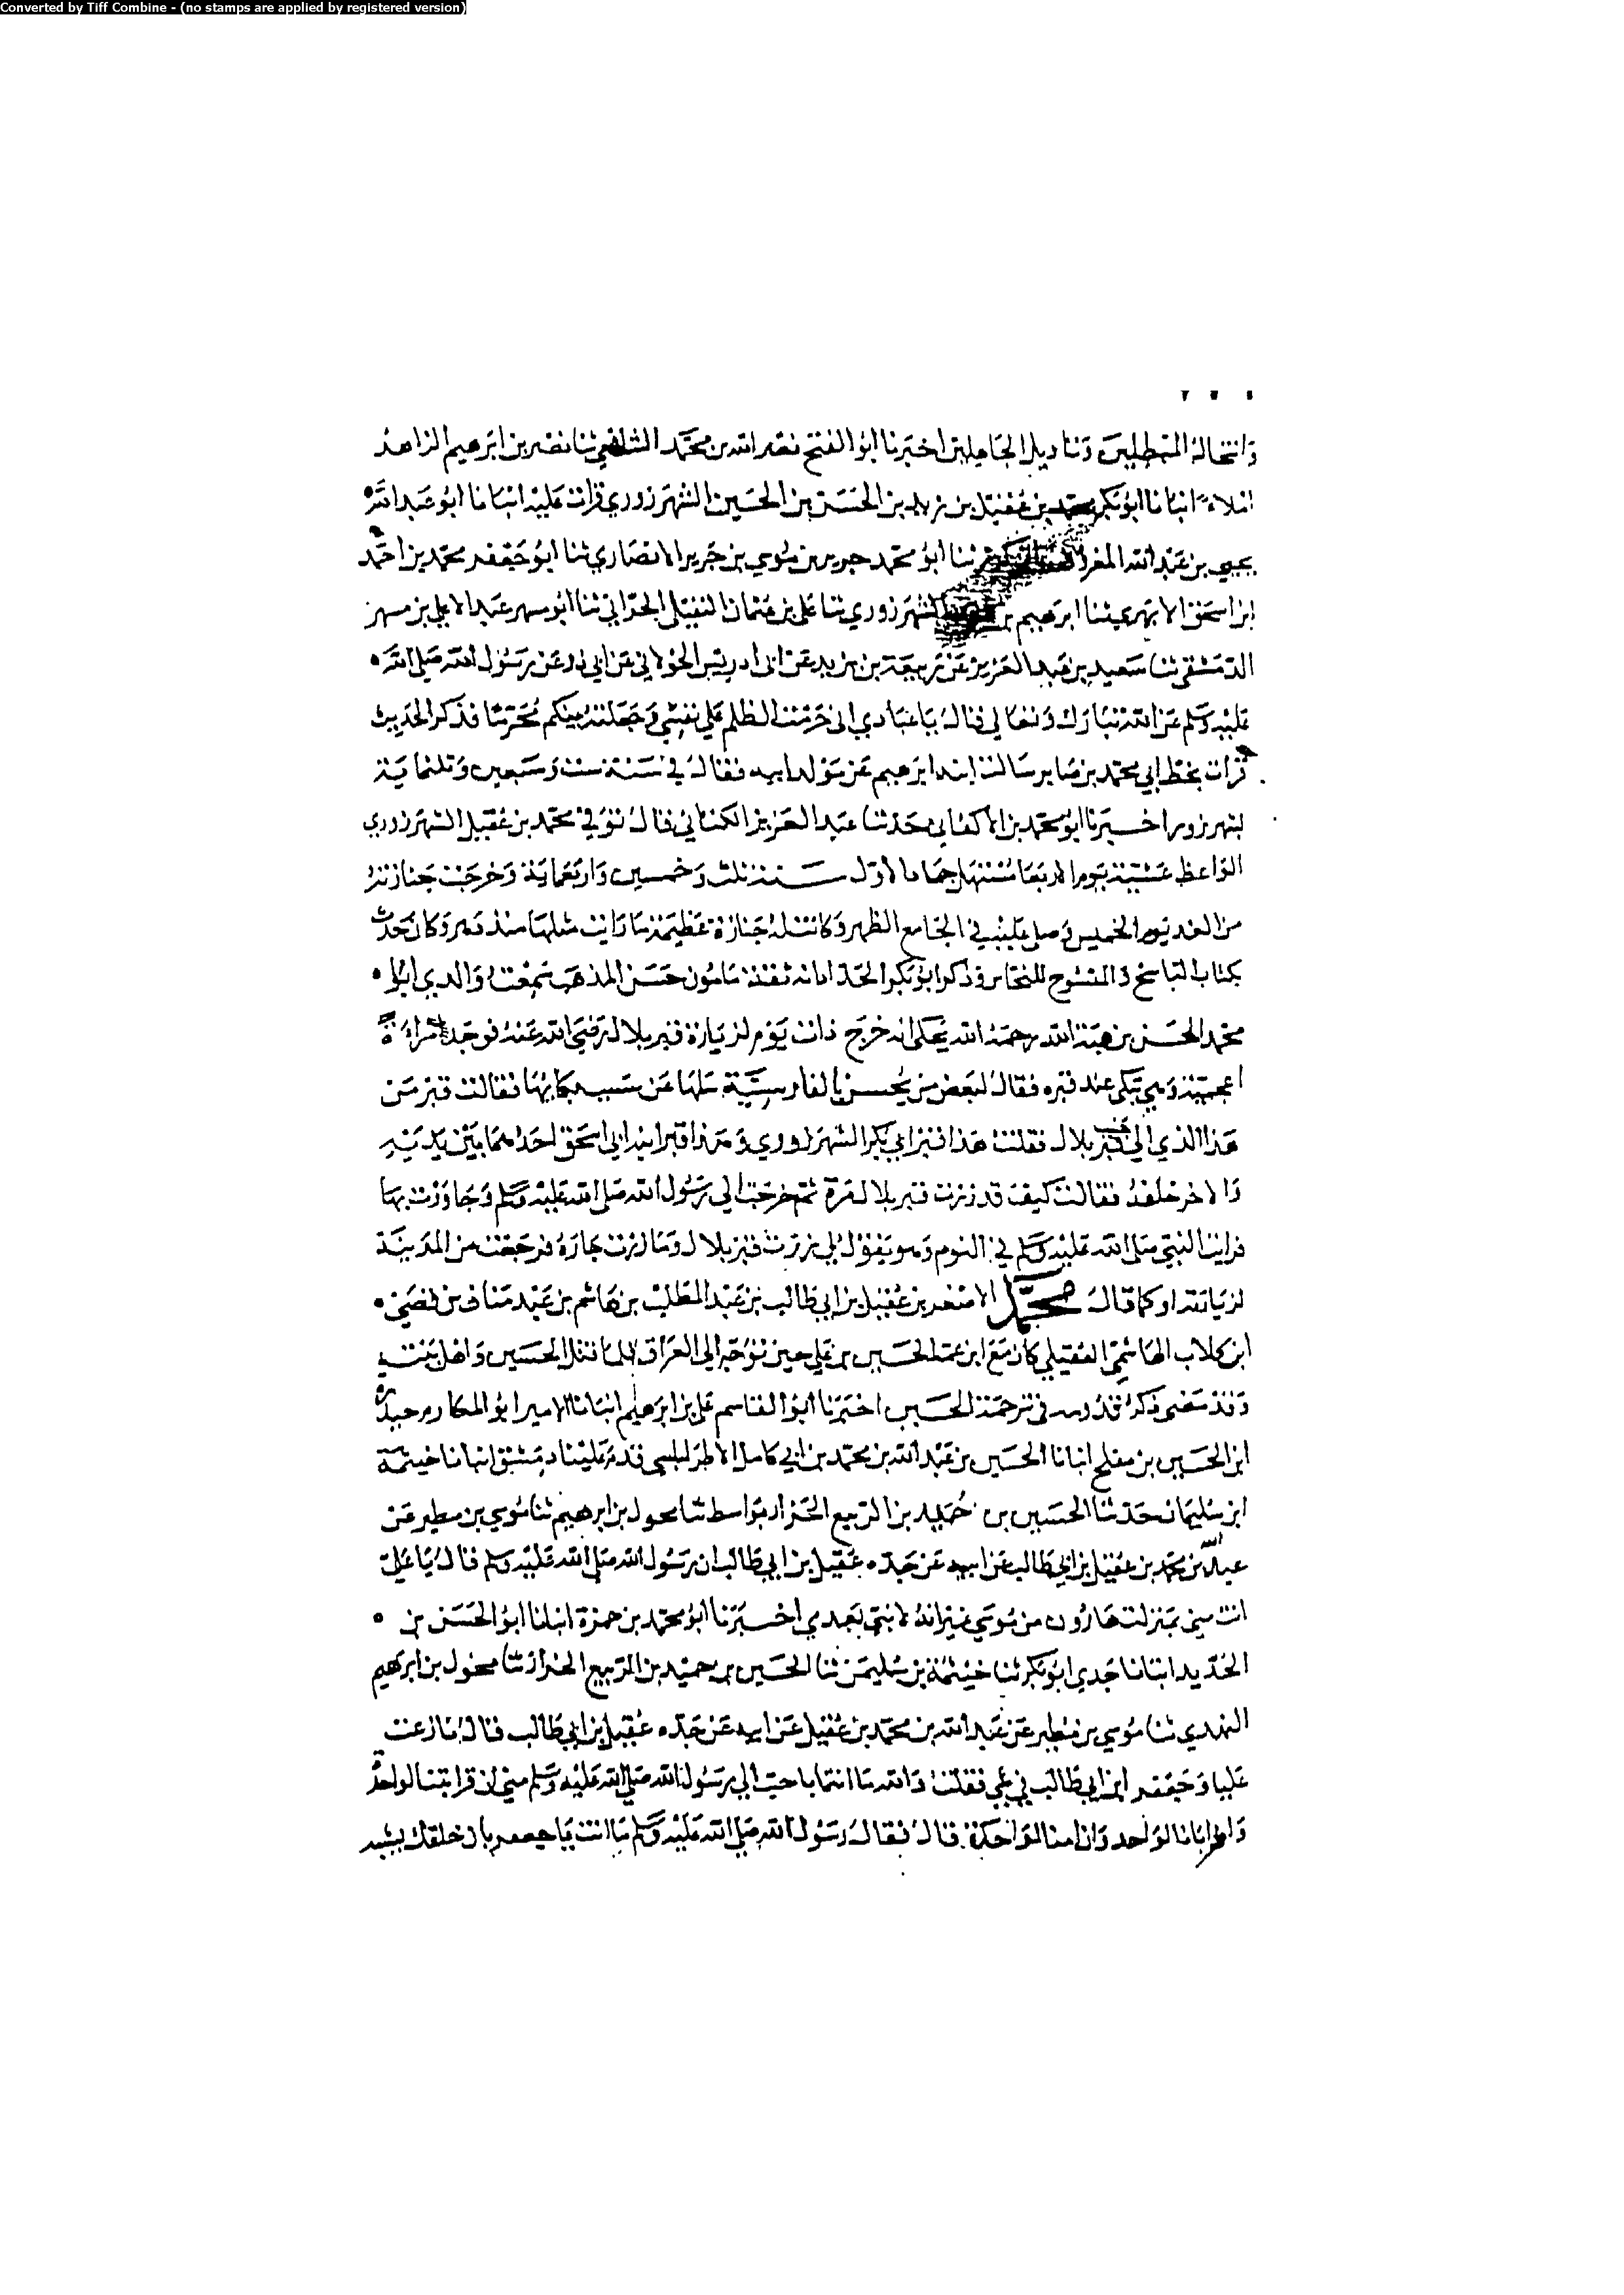 Converted by Tiff Combine - (no stamps are applied by registered version)
وانتحال المبطلين وتاويل الجاهلين اخبرنا ابو الفتح نصر الله بن محمد الشافعي ثنا نصر بن ابرهيم الزاهد
املاء انبانا ابو بكر محمد بن عقيل بن زيد بن الحسن بن الحسين الشهرزوري قرات عليه انبانا ابو عبد الله
يحيي بن عبد الله المعروف ثنا ابو محمد جرير بن موسي بن جرير الانصاري ثنا ابو جعفر محمد بن احمد
ابن اسحق الابهري ثنا ابرهيم بن الشهرزوري ثنا علي بن عثمان النفيلي الحراني ثنا ابو مسهر عبد الاعلي بن مسهر
الدمشقي ثنا سعيد بن عبد العزيز عن ربيعة بن يزيد عن ابي ادريس الخولاني عن ابي ذر عن رسول الله صلي الله
عليه وسلم عن الله تبارك وتعالي قال يا عبادي اني حرمت الظلم علي نفسي وجعلته بينكم محرما فذكر الحديث
قرات بخط ابي محمد بن صابر سالت ابنه ابرهيم عن مولد ابيه فقال في سنة ست وسبعين وثلثماية
بشهرزور اخبرنا ابو محمد بن الاكفاني حدثنا عبد العزيز الكتاني قال توفي محمد بن عقيل الشهرزوري
الواعظ عشية يوم الاربعا مستهل جمادا الاول سنة ثلث وخمسين واربعماية وخرجت جنازته
من الغد يوم الخميس وصلي عليه في الجامع الظهر وكانت له جنازة عظيمة ما رايت مثلها منذ دهر وكان حدث
بكتاب الناسخ والمنسوخ للنحاس وذكر ابو بكر الحداد انه ثقة مامون حسن المذهب سمعت والدي ابا
محمد الحسن بن هبة الله رحمه الله يحكي انه خرج ذات يوم لزيارة قبر بلال رضي الله عنه فوجد امراة
اعجمية وهي تبكي عند قبره فقال لبعض من يحسن بالفارسية سلها عن سبب بكايها فقالت قبر من
هذا الذي الي جنب قبر بلال فقلت هذا قبر ابي بكر الشهرزوري وهذا قبر ابنه ابي اسحق احدهما بين يديه
والاخر خلفه فقالت كيف قد زرت قبر بلال مرة ثم خرجت الي رسول الله صلي الله عليه وسلم وجاورت بها
فرايت النبي صلي الله عليه وسلم في النوم وهو يقول لي زرت قبر بلال وما زرت جاره فرجعت من المدينة
لزيارته او كما قال محمد الاصغر بن عقيل بن ابي طالب بن عبد المطلب بن هاشم بن عبد مناف بن قصي
ابن كلاب الهاشمي العقيلي كان مع ابن عمه الحسين بن علي حين توجه الي العراق لما قتل الحسين واهل بيته
وقد مضي ذكر قدومه في ترجمة الحسين اخبرنا ابو القاسم علي بن ابرهيم انبانا الامير ابو المكارم حيدرة
ابن الحسين بن مفلح انبانا الحسين بن عبد الله بن محمد بن ابي كامل الاطرابلسي قدم علينا دمشق انبانا خيثمة
ابن سليمان حدثنا الحسين بن حميد بن الربيع الخزاز بواسط ثنا مخول بن ابرهيم ثنا موسي بن مطير عن
عبد الله بن محمد بن عقيل بن ابي طالب عن ابيه عن جده عقيل بن ابي طالب ان رسول الله صلي الله عليه وسلم قال يا علي
انت مني بمنزلت هارون من موسي غير انه لا نبي بعدي اخبرنا ابو محمد بن حمزة انبانا ابو الحسن بن
الحديد انبانا جدي ابو بكر ثنا خيثمة بن سليمن ثنا الحسين بن حميد بن الربيع الخزاز ثنا مخول بن ابرهيم
النهدي ثنا موسي بن مطير عن عبد الله بن محمد بن عقيل عن ابيه عن جده عقيل بن ابي طالب قال نازعت
عليا وجعفر ابن ابي طالب في شي فقلت والله ما انتما باحب الي رسول الله صلي الله عليه وسلم مني ان قرابتنا لواحدة
وان ابانا لواحد وان امنا لواحدة قال فقال رسول الله صلي الله عليه وسلم ما انت يا جعفر بان خلقك يشبه